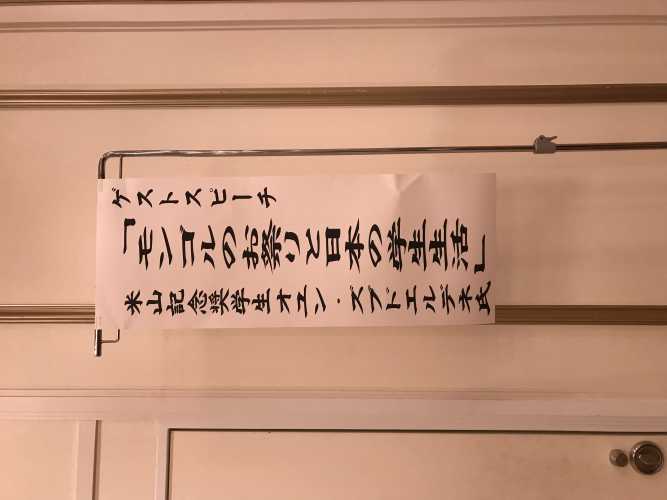 ゲストスピーチ
「モンゴルのお祭りと日本の学生生活」
米山記念奨学生オユン・ズプトエルデネ氏